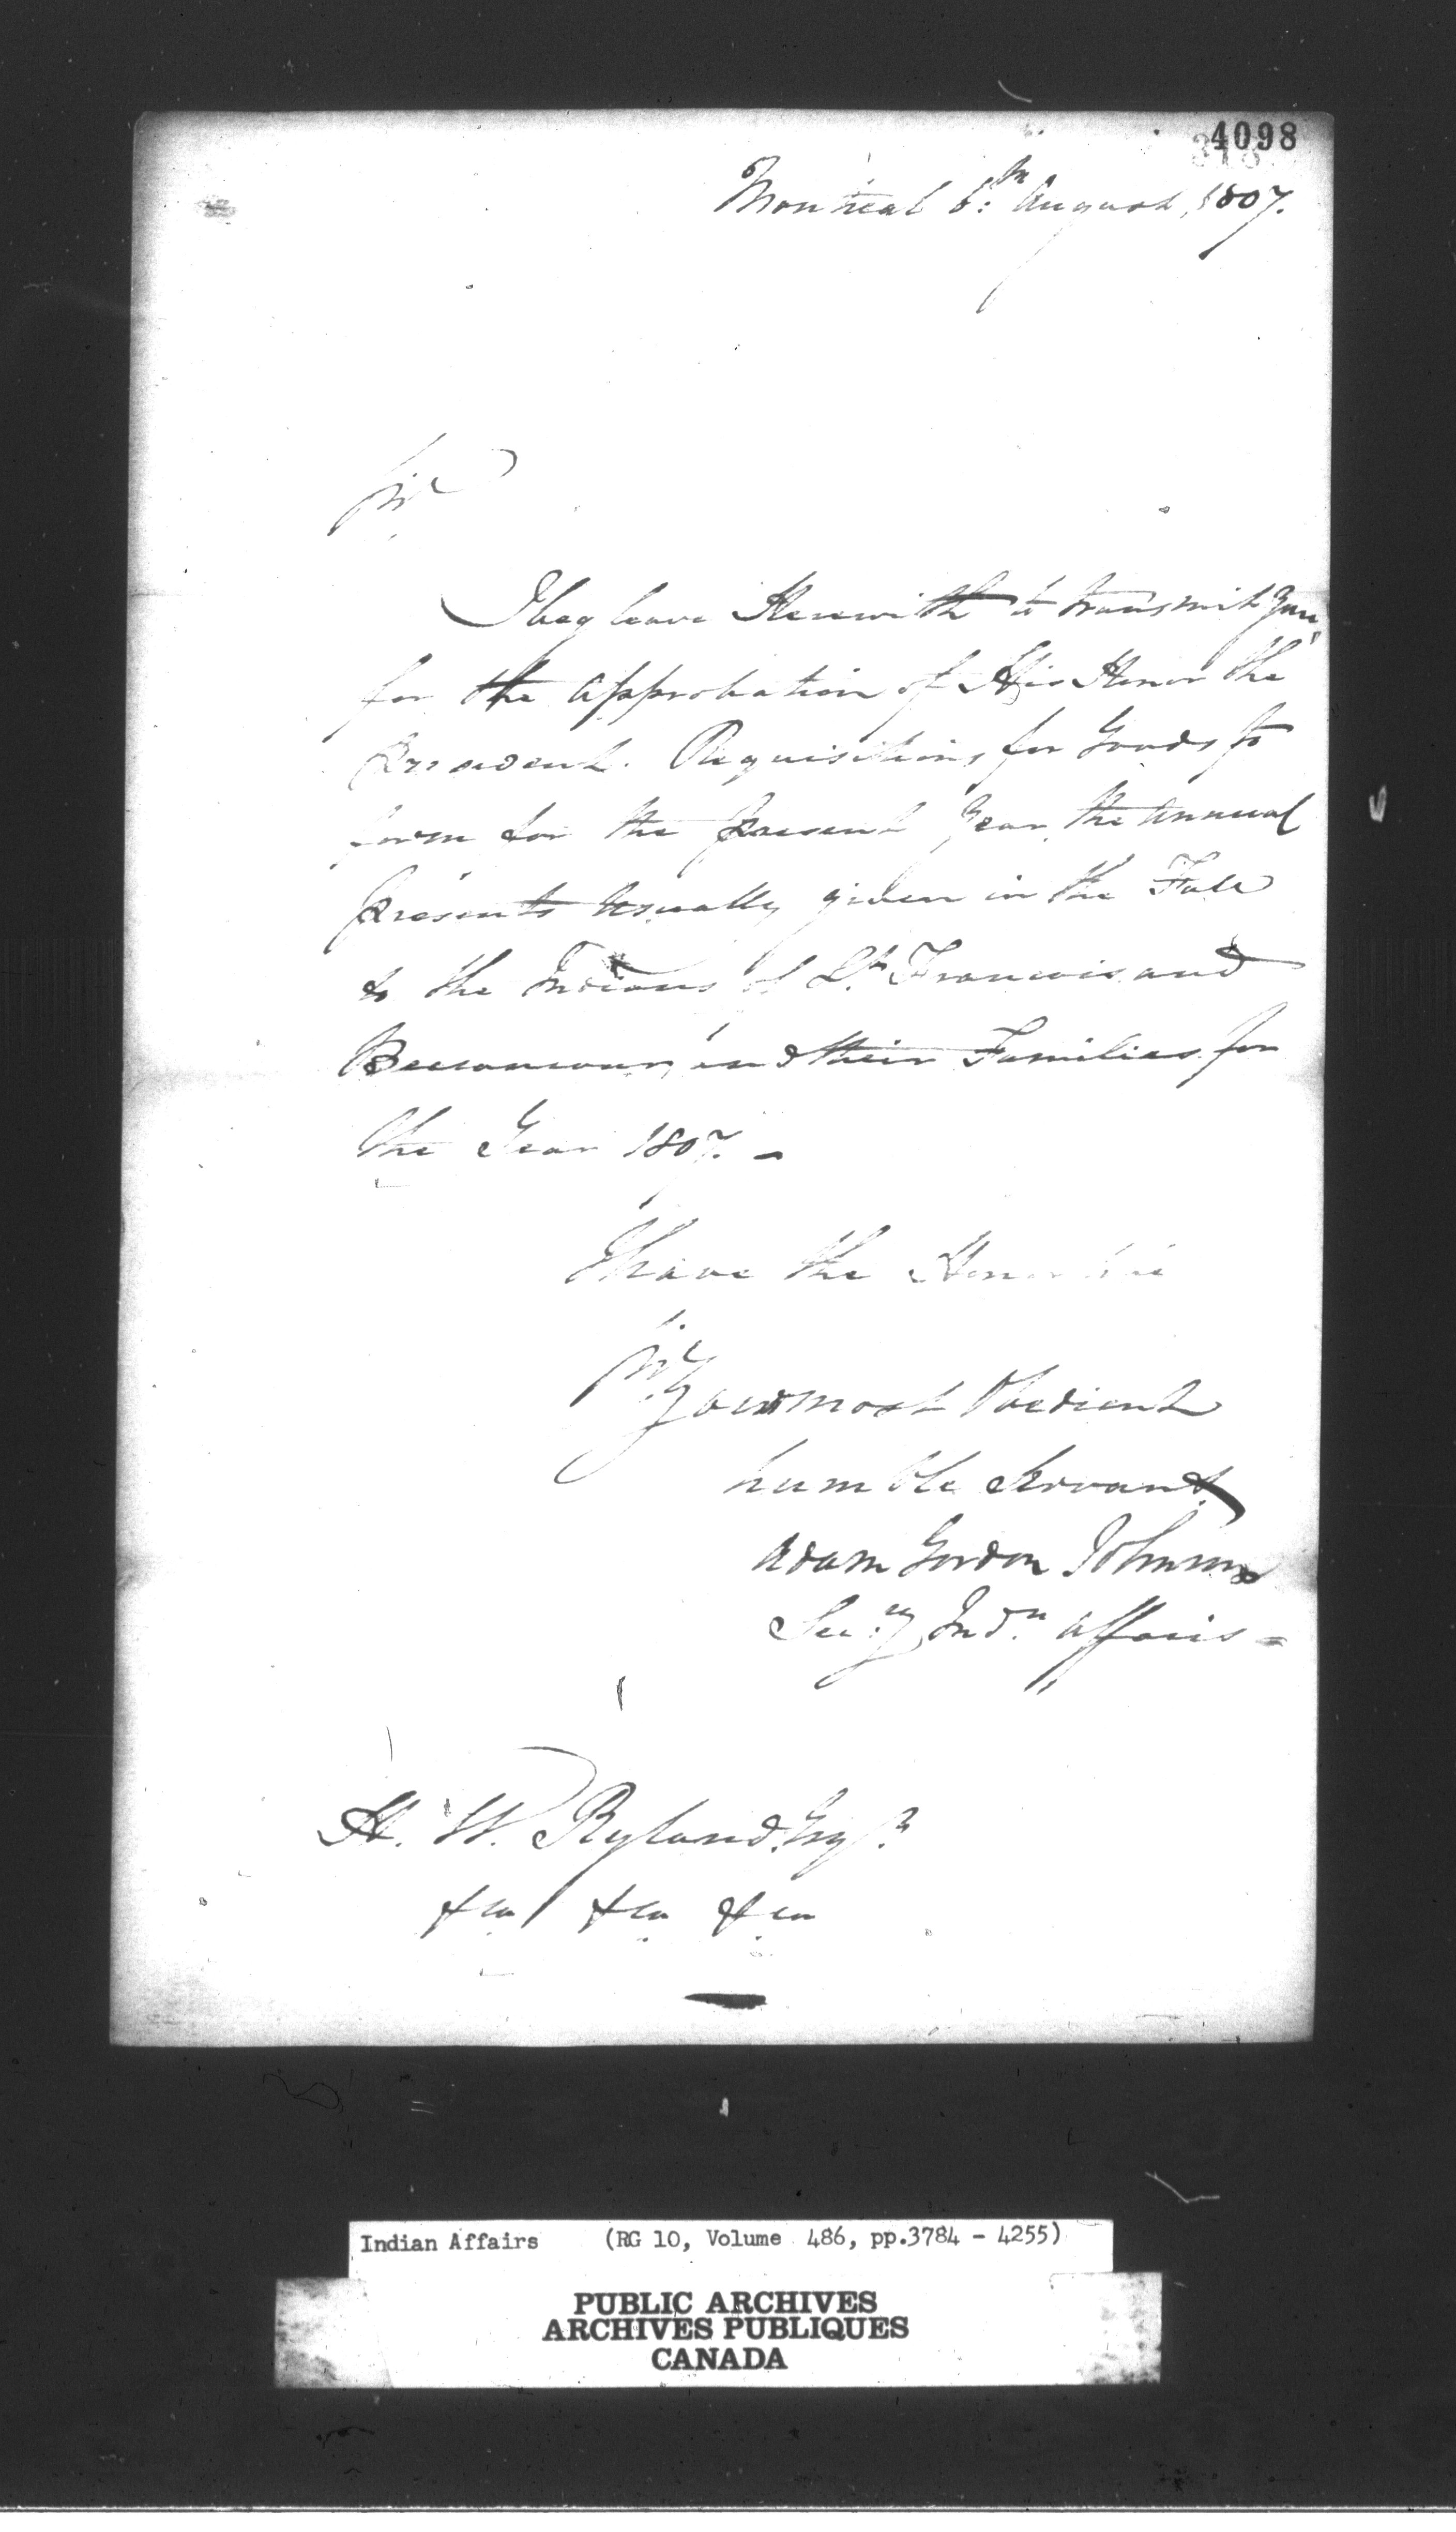 4098
318
Montreal 6:th August, 1807.
Sir
I beg leave Herewith to transmit you,
for the Approbation of His Honor the
President. Requisitions for Goods to
form for the present Year, the annual
presents usually given in the Fall
to the Indians of St. Francois and
Becancour, and their Families for
the Year 1807. -
I have the Honor
Sir
Your most Obedient
humble Servant
Adam Gordon Johnson
Secy. Indn. Affairs =
H. W. Ryland Esqr.
&ca &ca &ca
Indian Affairs (RG 10, Volume 486, pp.3784 - 4255)
PUBLIC ARCHIVES
ARCHIVES PUBLIQUES
CANADA